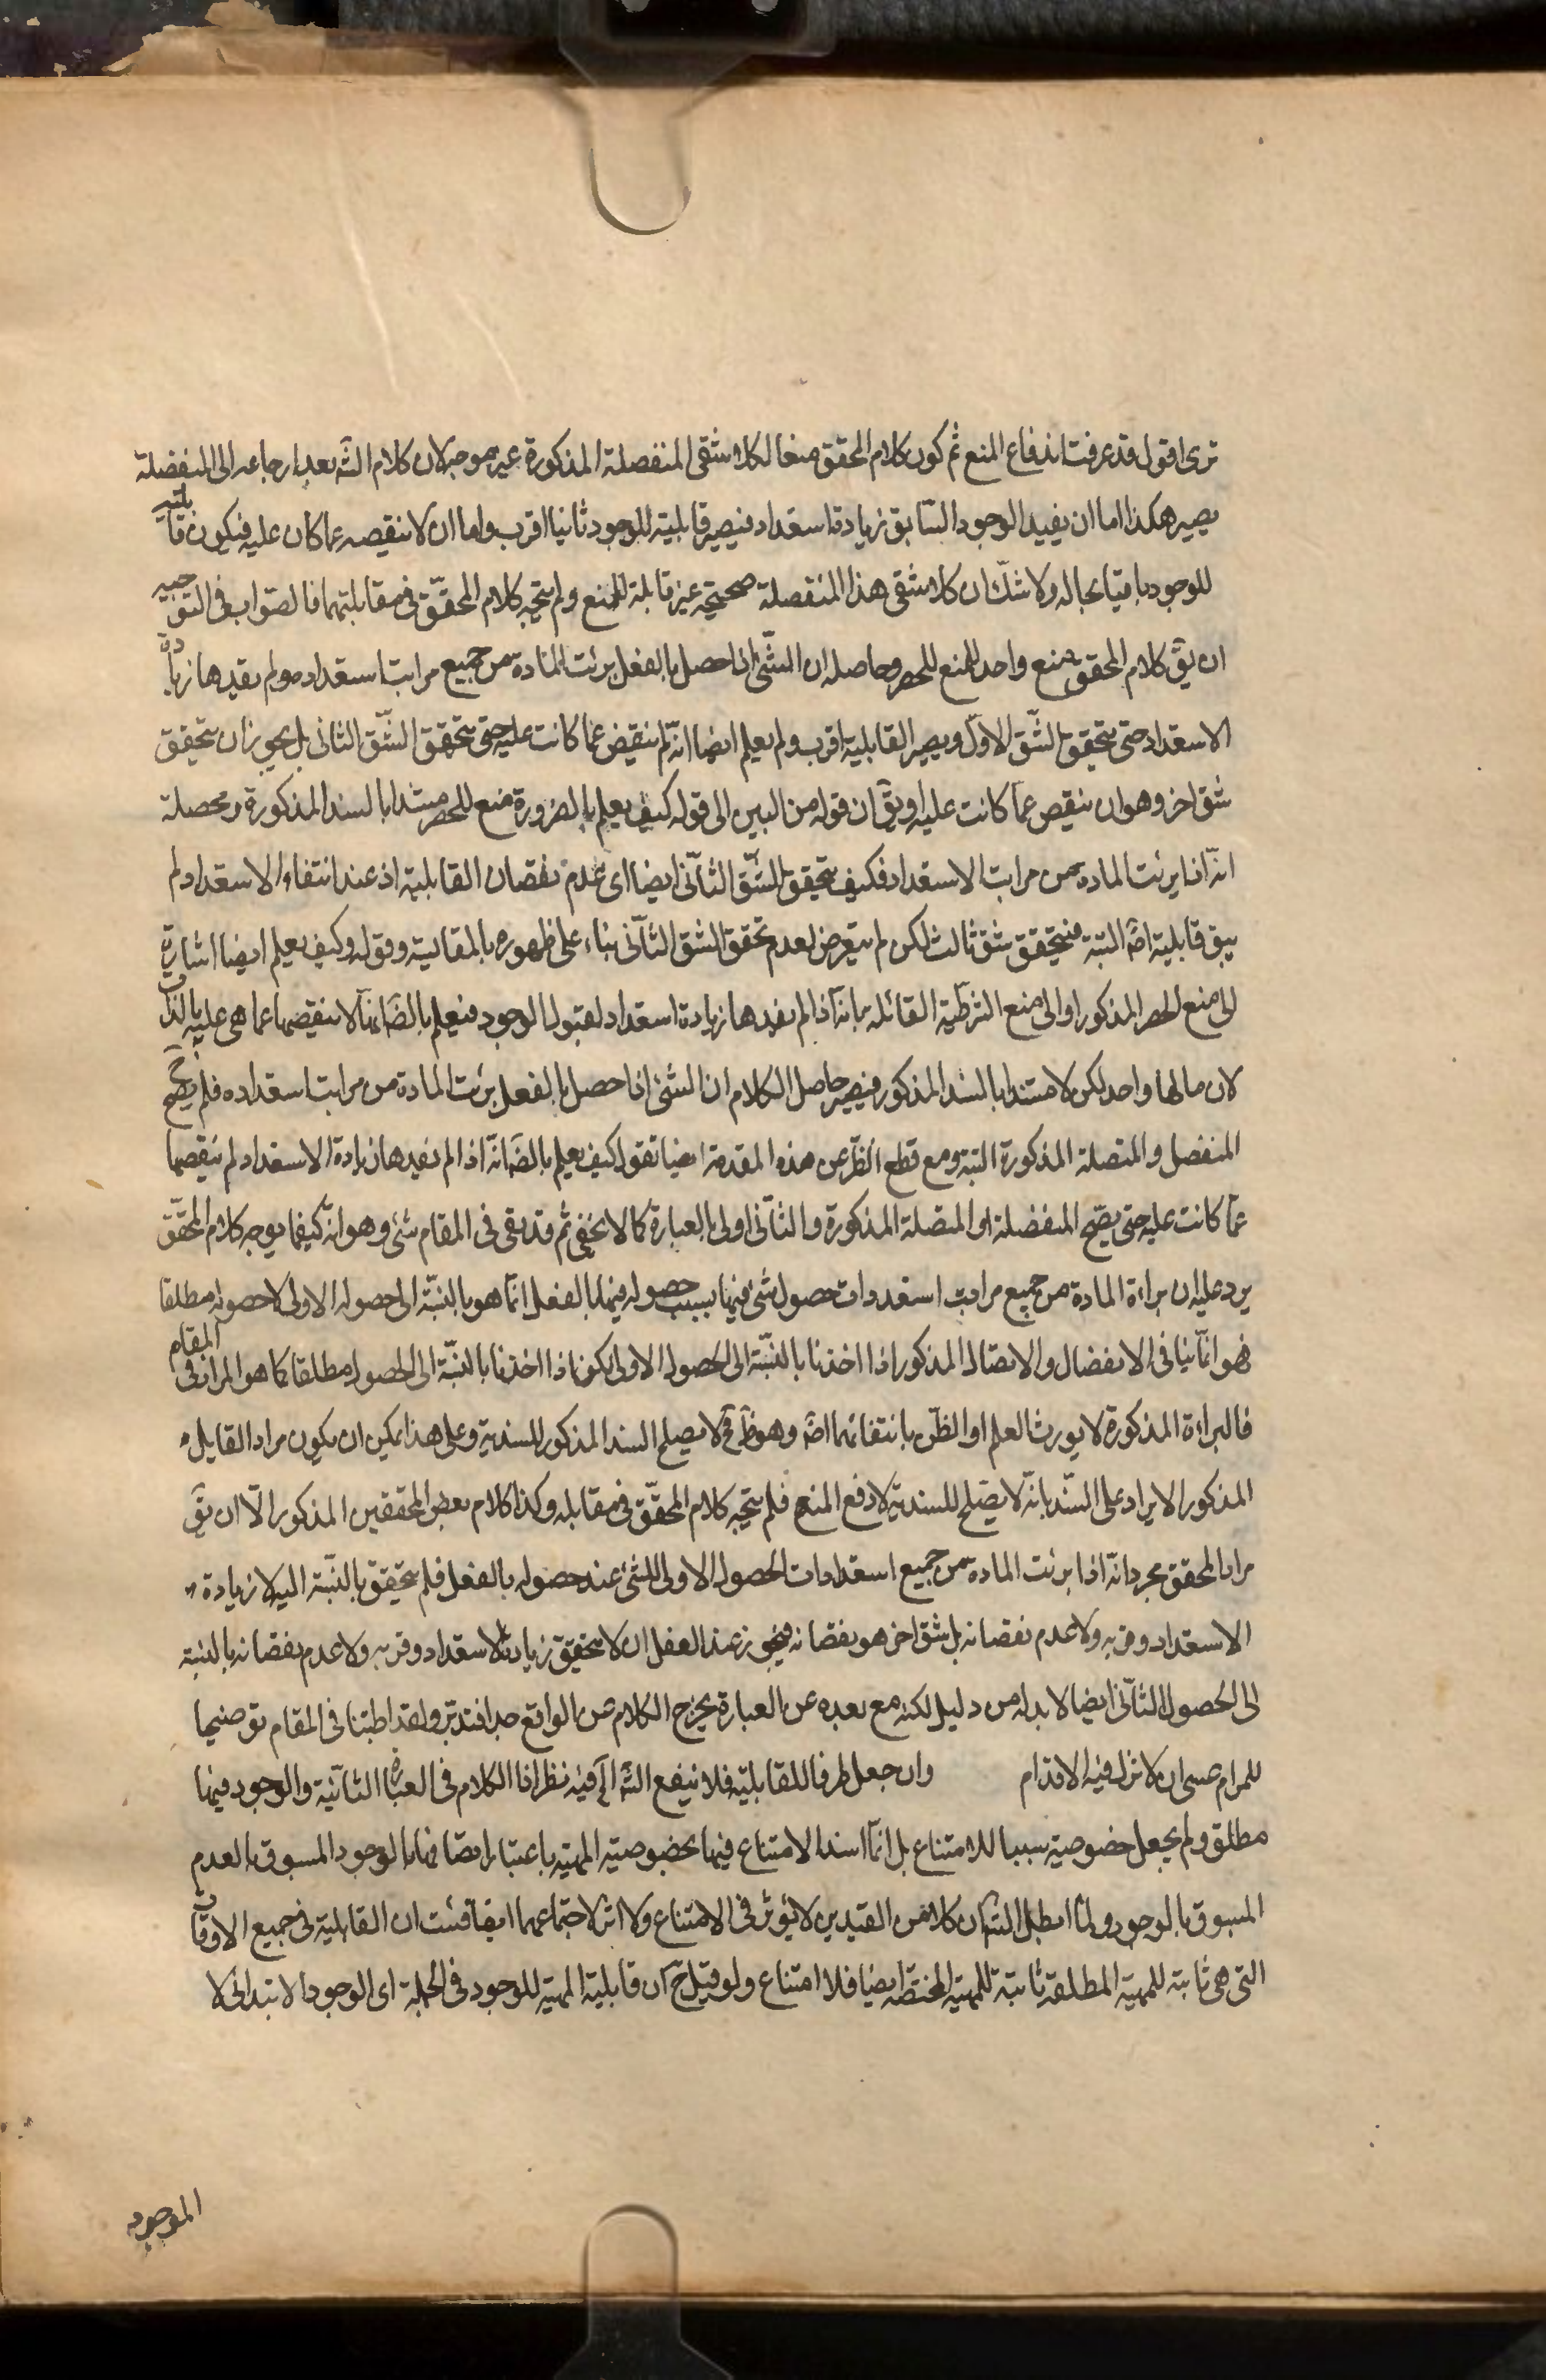 ترى اقول قد عرفت اندفاع المنع ثم كون كلام المحقق منعا لكلا شقى المنفصلة المذكورة غير موجه لان كلام الشه بعد ارجاعه الى المنفصلة
يصير هكذا اما ان يفيد الوجود السّابق زيادة استعداد فيصير قابليته للوجود ثانيا اقرب واما ان لا ينقصه عما كان عليه فيكون قابليته
للوجود باقيا بحاله ولا شكّ ان كلا شقى هذا المنفصلة صحيحة غير قابلة للمنع ولم يتّجه كلام المحقّق فى مقابلتهما فالصّواب فى التوجيه
ان يقّ كلام المحقق منع واحد للمنع للحصر وحاصله ان الشّئ اذا حصل بالفعل برئت المادة من جميع مراتب استعداده ولم يفيدها زيادة
الاستعداد حتى يتحقق الشّق الاوّل ويصير القابلية اقرب ولم يعلم ايضا انّه لم ينقص عمّا كانت عليه حتى يتحقق الشّق الثانى بل يجوز ان يتحقق
شق اخر وهو ان ينقص عمّا كانت عليه او يقّ ان قوله من البين الى قوله كيف يعلم بالضرورة منع للحصر مستندا بالسند المذكورة ومحصله
انّه اذا برئت المادة من مراتب الاستعداد فكيف يتحقق الشّق الثّانى ايضا اى عدم نقصان القابلية اذ عند انتفاء الاستعداد لم
يبق قابلية اصّه البتة فيتحقق شق ثالث لكن لم يتعرض لعدم تحقق الشق الثّانى بناء على ظهوره بالمقايسة وقوله وكيف يعلم ايضا اشارة
الى منع الحصر المذكور او الى منع الشرطّية القائلة بانه اذا لم يفيدها زيادة استعداد لقبول الوجود فيعلم بالضّه انها لا ينقصها عما هى عليه بالذات
لان مالها واحد لكن لا مستندا بالسند المذكور فيصير حاصل الكلام ان الشئ اذا حصل بالفعل برئت المادة من مراتب استعداده فلم يصح
المنفصل والمتصلة المذكورة البتة ومع قطع النظّر عن هذه المقدمة ايضا نقول كيف يعلم بالضّه انّه اذا لم يفيدها زيادة الاستعداد لم ينقصها
عمّا كانت عليه حتى يصّح المنفصلة او المتصلة المذكورة والثّانى اولى بالعبارة كما لا يخفى ثم قد بقى فى المقام شئ وهو انّه كيفما يوجه كلام المحقّق
يرد عليه ان براءة المادة من جميع مراتب استعدادات حصول شئ فيها بسبب حصوله فيها بالفعل انّما هو بالنّسبة الى حصوله الاولى لا حصوله مطلقا
فهو انّما ينافى الانفصال والاتصال المذكور اذا اخذنا بالنّسبة الى الحصول الاولى لكون اذا اخذنا بالنّسبة الى الحصول مطلقا كما هو المراد فى المقام
فالبراءة المذكورة لا يورث العلم او الظّن بانتفائهما اصّه وهو ظّ فح لا يصلح السند المذكور للسندية وعلى هذا يمكن ان يكون مراد القايل
المذكور الايراد على السّند بانّه لا يصّلح للسندية لا دفع المنع فلم يتجه كلام المحقّق فى مقابله وكذا كلام بعض المحققين المذكور الّا ان يقّ
مراد المحقق مجرد انّه اذا برئت المادة من جميع استعدادات الحصول الاولى للشئ عند حصوله بالفعل فلم يتحقق بالنّسبة اليه لا زيادة
الاستعداد وقربه ولا عدم نقصانه بل شق اخر هو نقصانه فيجوز عند العقل ان لا يتحقق زيادة الاستعداد وقربه ولا عدم نقصانه بالنسبة
الى الحصول الثّانى ايضا لا بد له من دليل لكنه مع بعده عن العبارة يخرج الكلام عن الواقع جدا فتدبّر ولقد اطنبنا فى المقام توضيحا
للمرام عسى ان لا تزل فيه الاقدام وان جعل ظرفا للقابليّة فلا ينفع الشّه الّه فيه نظر اذا الكلام فى العبارة الثّانية والوجود فيها
مطلق ولم يجعل خصوصية سببا للامتناع بل انّما اسند الامتناع فيها بخصوصية المهيّة باعتبار اتصافها بالوجود المسبوق بالعدم
المسبوق بالوجود ولمّا ابطل الشّه ان كلا من القيدين لا يؤثر فى الامتناع ولا اثر لاجتماعهما ايضا فثبت ان القابلية فى جميع الاوقات
التى هى ثابتة للمهية المطلقة ثابتة للمهية المختصّة ايضا فلا امتناع ولو قيل ح ان قابلية المهية للوجود فى الجملة اى الوجود الابتدائى لا
الموجود